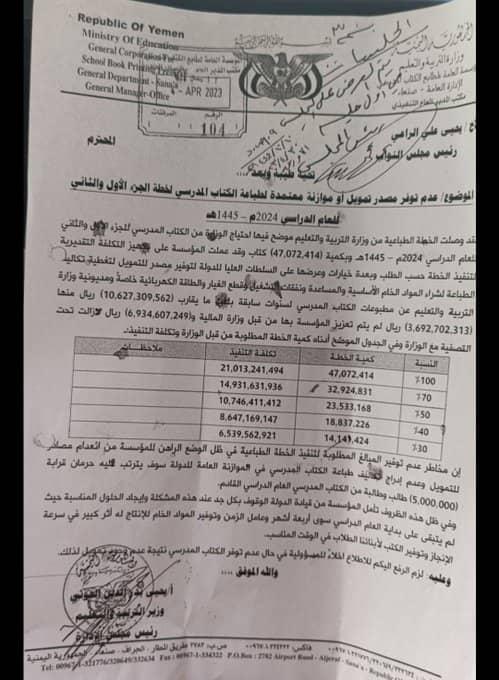 Republic Of Yemen
Ministry Of Education
General Corporation For
School Book Printing
General Department - Sana'a
General Manager-Office
الجمهورية اليمنية
وزارة التربية والتعليم
APR 2023
المرفقات
104
الأخ/ يحيى علي الراعي المحترم
رئيس مجلس النواب
تحية طيبة وبعد،،،
الموضوع/ عدم توفر مصدر تمويل أو موازنة معتمدة لطباعة الكتاب المدرسي لخطة الجزء الأول والثاني
للعام الدراسي 2024م – 1445هـ
وصلت الخطة الطباعية من وزارة التربية والتعليم موضح فيها احتياج الوزارة من الكتاب المدرسي للجزء الأول والثاني
للعام الدراسي 2024م – 1445هـ وبكمية (47,072,414) كتاب وقد عملت المؤسسة على تجهيز التكلفة التقديرية
لتنفيذ الخطة حسب الطلب وبعدة خيارات وعرضها على السلطات العليا للدولة لتوفير مصدر للتمويل لتغطية تكاليف
الطباعة لشراء المواد الخام الأساسية والمساعدة ونفقات التشغيل وقطع الغيار والطاقة الكهربائية خاصة ومديونية وزارة
التربية والتعليم عن مطبوعات الكتاب المدرسي لسنوات سابقة بلغت ما يقارب (10,627,309,562) ريال منها
(3,692,702,313) ريال لم يتم تعزيز المؤسسة بها من قبل وزارة المالية و(6,934,607,249) ريال لازالت تحت
التصفية مع الوزارة وفي الجدول الموضح أدناه كمية الخطة المطلوبة من قبل الوزارة وتكلفة التنفيذ:
النسبة كمية الخطة تكلفة التنفيذ ملاحظات
%100 47,072,414 21,013,241,494
%70 32,924,831 14,931,631,936
%50 23,533,168 10,746,411,412
%40 18,837,226 8,647,169,147
%30 14,141,424 6,539,562,921
إن مخاطر عدم توفير المبالغ المطلوبة لتنفيذ الخطة الطباعية في ظل الوضع الراهن للمؤسسة من انعدام مصادر
للتمويل وعدم إدراج تكاليف طباعة الكتاب المدرسي في الموازنة العامة للدولة سوف يترتب عليه حرمان قرابة
(5,000,000) طالب وطالبة من الكتاب المدرسي العام الدراسي القادم.
وفي ظل هذه الظروف تأمل المؤسسة من قيادة الدولة الوقوف بكل جد عند هذه المشكلة وإيجاد الحلول المناسبة حيث
لم يتبقى على بداية العام الدراسي سوى أربعة أشهر وعامل الزمن وتوفير المواد الخام للإنتاج له أثر كبير في سرعة
الإنجاز وتوفير الكتب لأبنائنا الطلاب في الوقت المناسب.
وعليه: لزم الرفع إليكم للاطلاع إخلاءً للمسؤولية في حال عدم توفر الكتاب المدرسي نتيجة عدم وجود تمويل لذلك.
والله الموفق ....
أ/ يحيى بدر الدين الحوثي
وزير التربية والتعليم
رئيس مجلس الإدارة